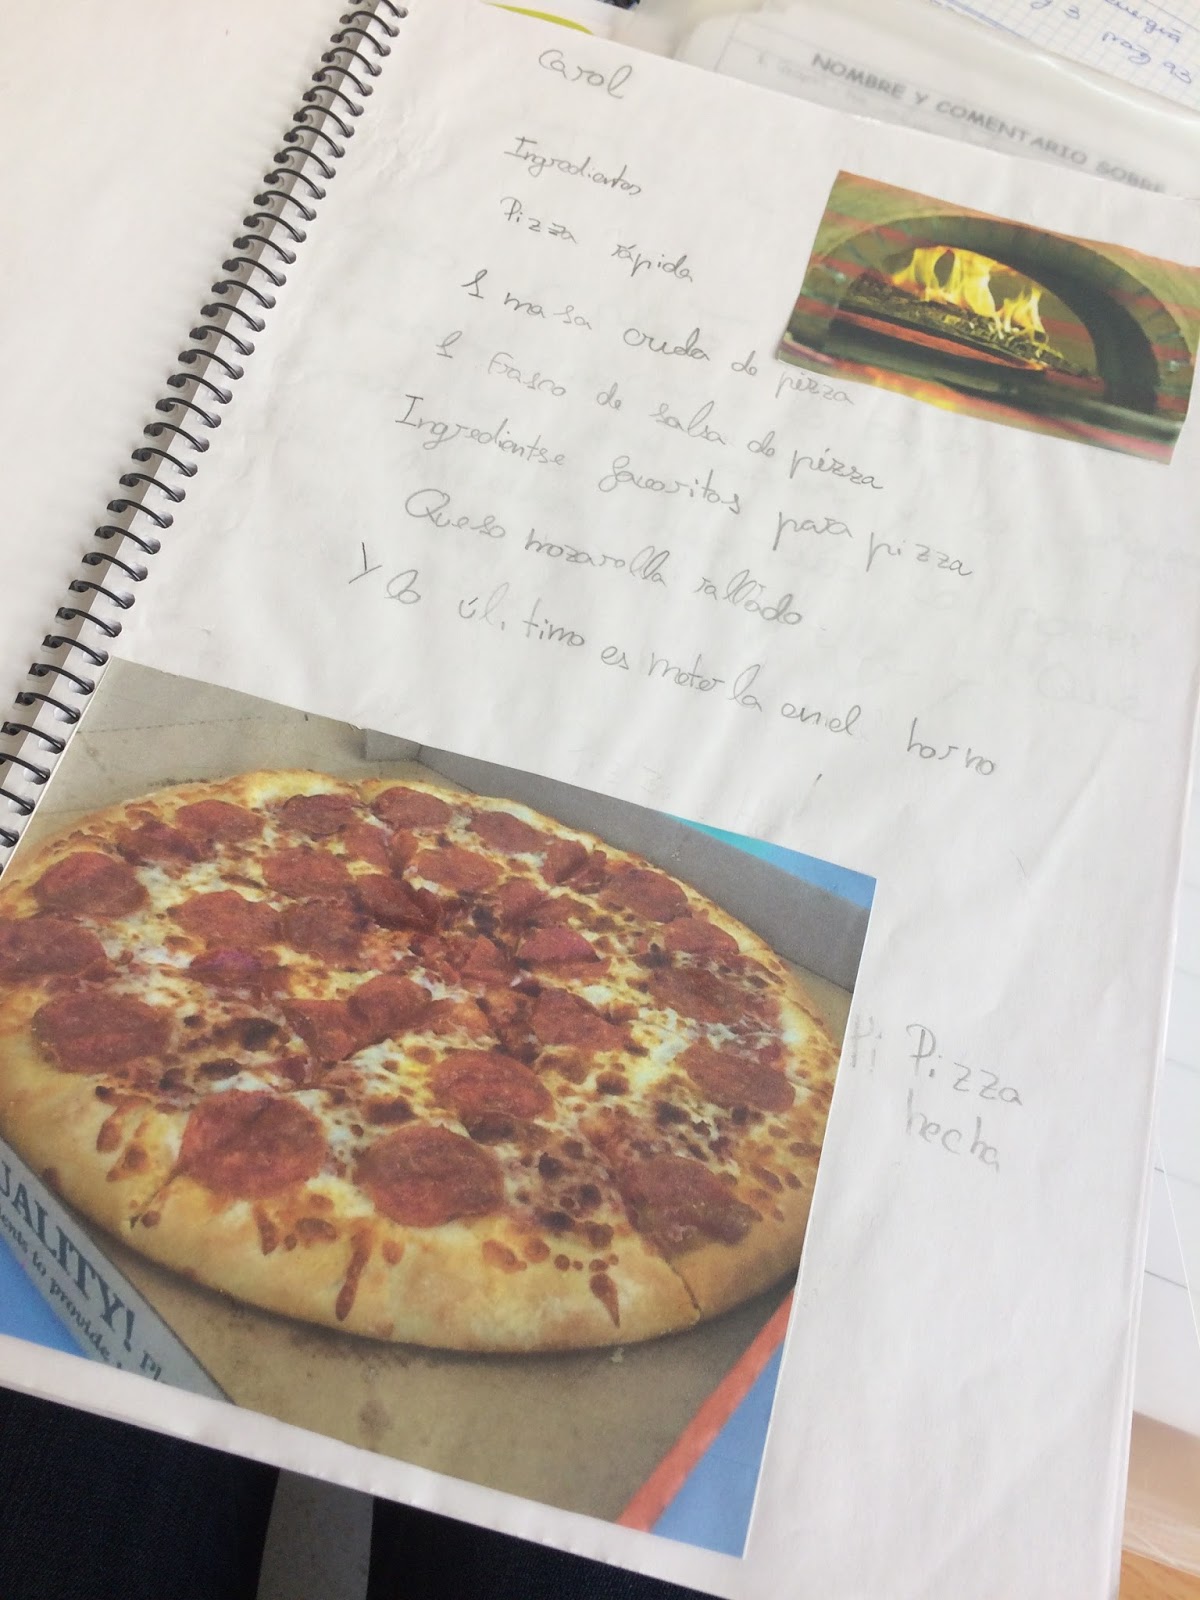 Carol
Ingredientes
Pizza rápida
1 masa cruda de pizza
1 Frasco de salsa de pizza
Ingredientse favoritos para pizza
Queso mozarella rallado
Y lo último es meterla en el horno
Pizza
hecha
NOMBRE Y COMENTARIO SOBRE
energía
3
pag 93
UALITY!
to provide